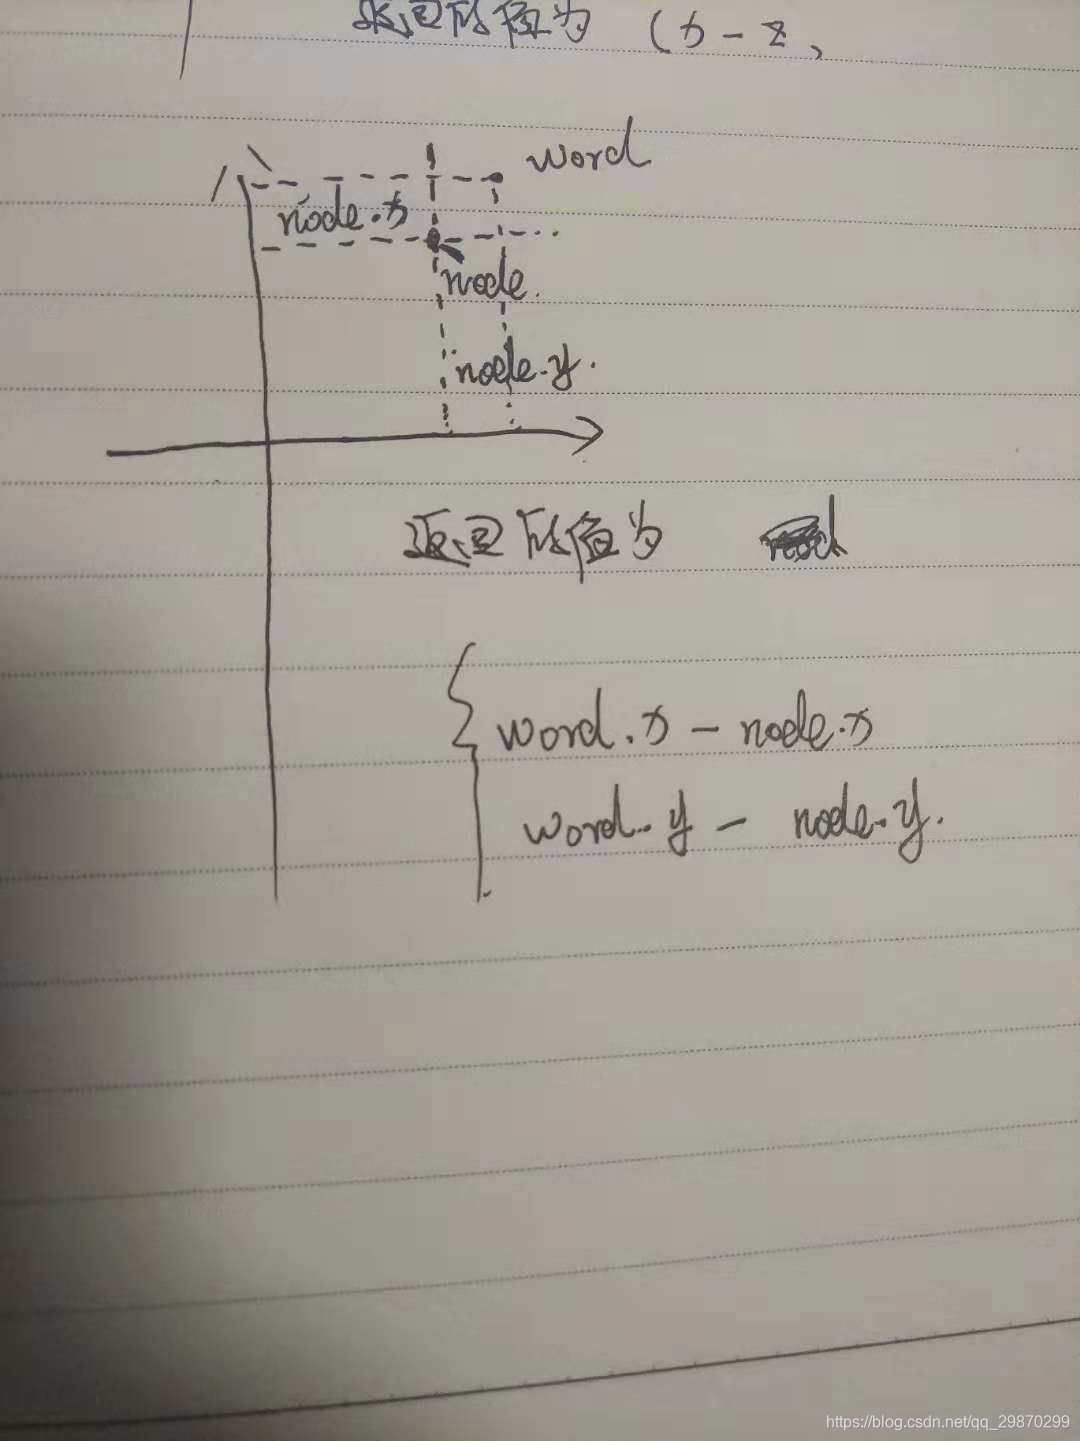 返回的值为 (x - z,
word
node.x
node.
node.y.
返回的值为
word.x - node.x
word.y - node.y.
https://blog.csdn.net/qq_29870299